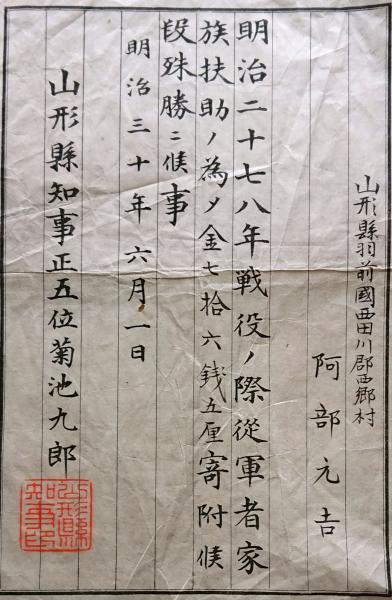 山形縣羽前國西田川郡西郷村
阿部元吉
明治二十七八年戦役ノ際從軍者家
族扶助ノ為メ金七拾六銭五厘寄附候
段殊勝ニ候事
明治三十年六月一日
山形縣知事正五位菊池九郎
山形縣
知事印